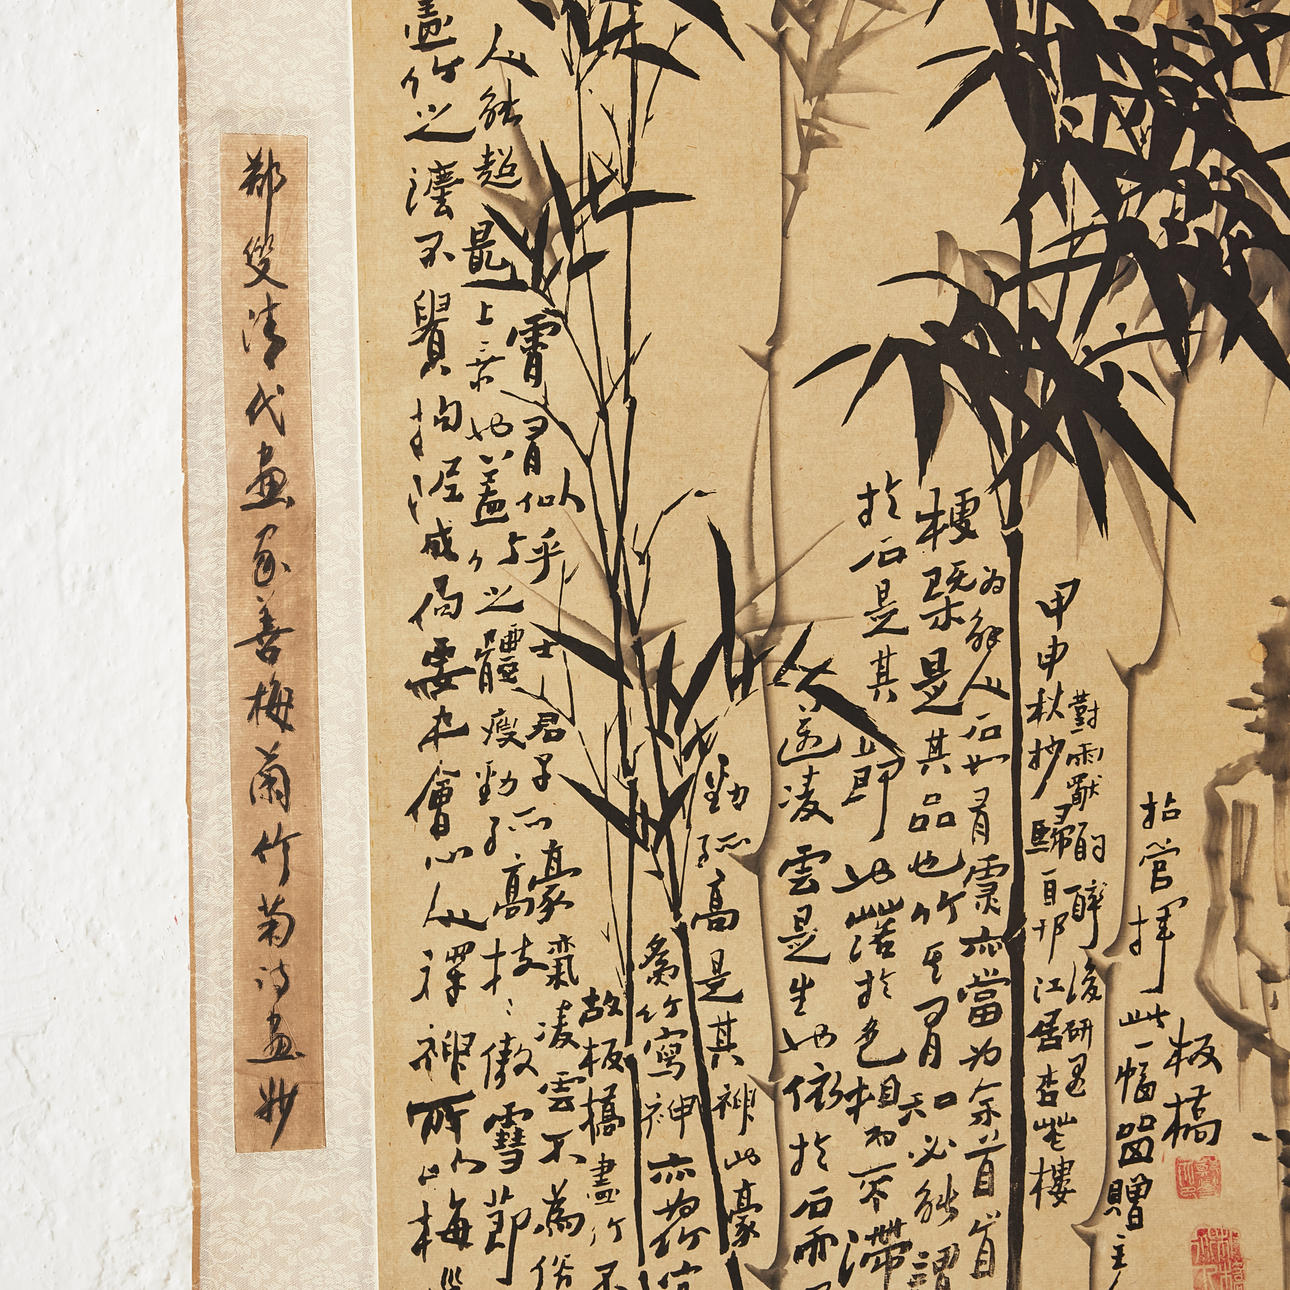 鄭燮清代画家善梅蘭竹菊詩画妙
畫竹之灋不貴拘泥成局要在會心人得神所以梅
人能超最上乘也蓋竹之體瘦勁孤高枝枝傲雪節
霄有似乎士君子豪氣凌雲不為俗
故板橋畫竹不
為竹寫神亦為竹寫
勁孤高是其神也豪
邁凌雲是生也依於石而
於石是其節也落於色相而不滯
梗槩是其品也竹其有知必能謂
為解人石如有靈亦當為余首肯
甲申秋杪歸自邗江居杏花樓
對雨獨酌醉後研墨
拈管揮此一幅留贈主
板橋